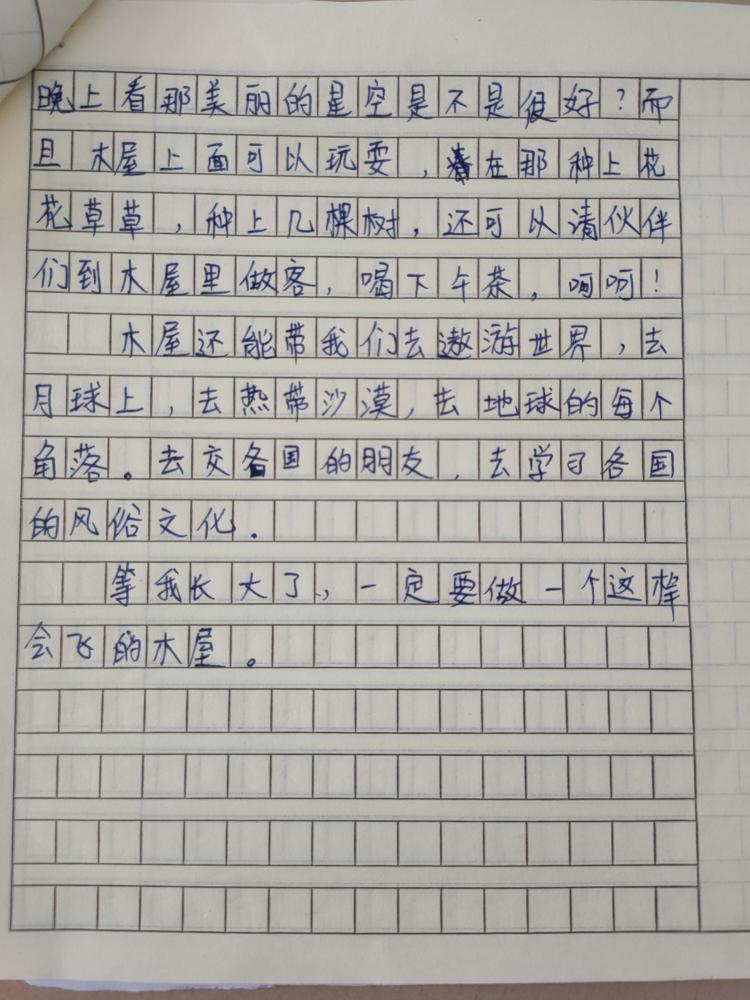 晚上看那美丽的星空是不是很好？而
且木屋上面可以玩耍，在那种上花
花草草，种上几棵树，还可以请伙伴
们到木屋里做客，喝下午茶，呵呵！
木屋还能带我们去遨游世界，去
月球上，去热带沙漠，去地球的每个
角落。去交各国的朋友，去学习各国
的风俗文化。
等我长大了，一定要做一个这样
会飞的木屋。